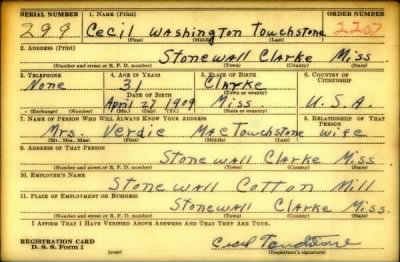 SERIAL NUMBER 1. NAME (Print) ORDER NUMBER
299 Cecil Washington Touchstone 2207
(First) (Middle) (Last)
2. ADDRESS (Print)
Stonewall Clarke Miss.
(Number and street or R. F. D. number) (Town) (County) (State)
3. TELEPHONE 4. AGE IN YEARS 5. PLACE OF BIRTH 6. COUNTRY OF CITIZENSHIP
None 31 Clarke
DATE OF BIRTH (Town or county)
April 27 1909 Miss. U.S.A.
(Exchange) (Number) (Mo.) (Day) (Yr.) (State or country)
7. NAME OF PERSON WHO WILL ALWAYS KNOW YOUR ADDRESS 8. RELATIONSHIP OF THAT PERSON
Mrs. Verdie Mae Touchstone Wife
(Mr., Mrs., Miss) (First) (Middle) (Last)
9. ADDRESS OF THAT PERSON
Stonewall Clarke Miss.
(Number and street or R. F. D. number) (Town) (County) (State)
10. EMPLOYER'S NAME
Stonewall Cotton Mill
11. PLACE OF EMPLOYMENT OR BUSINESS
Stonewall Clarke Miss.
(Number and street or R. F. D. number) (Town) (County) (State)
I AFFIRM THAT I HAVE VERIFIED ABOVE ANSWERS AND THAT THEY ARE TRUE.
REGISTRATION CARD
D. S. S. Form 1 (over) Cecil Touchstone
(Registrant's signature)